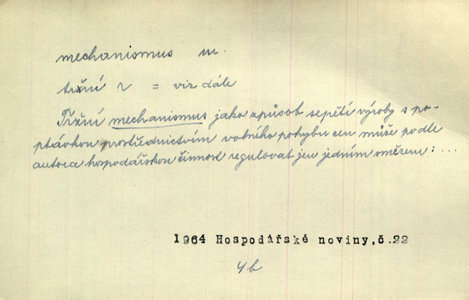 mechanismus m.
tržní ~ = viz dále
Tržní mechanismus jako způsob sepětí výroby s po-
ptávkou prostřednictvím volného pohybu cen může podle
autora hospodářskou činnost regulovat jen jedním směrem: ...
1964 Hospodářské noviny,č.22
4b